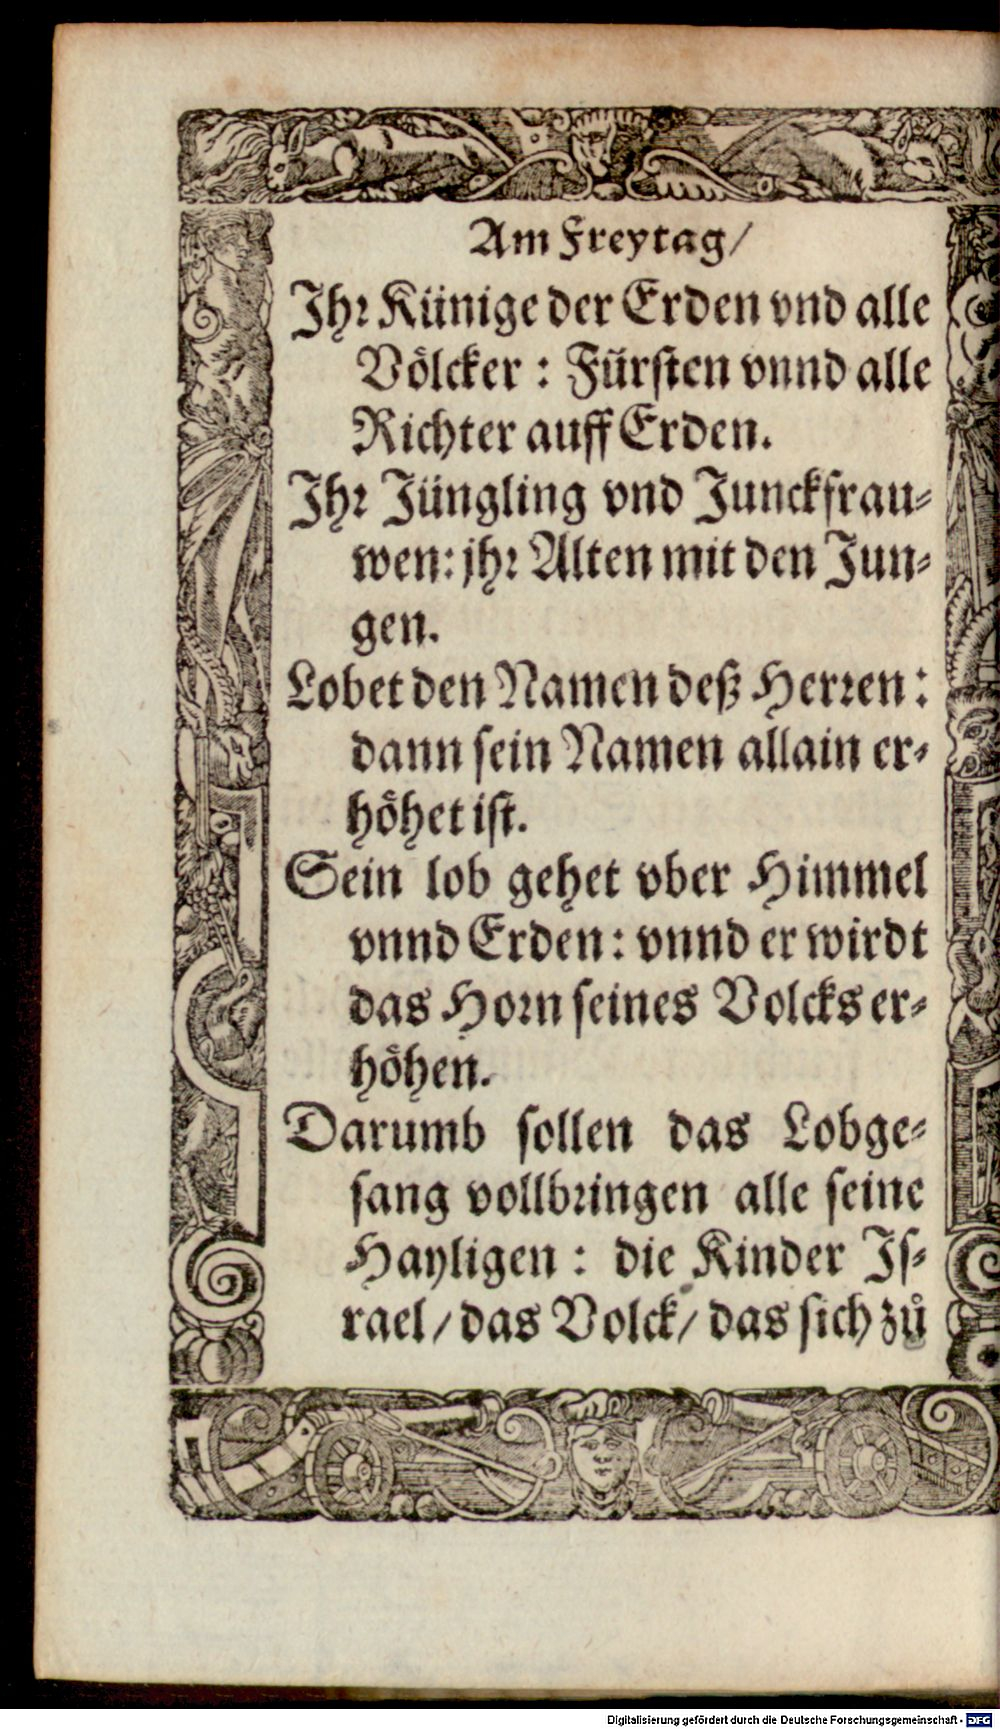 Am Freytag/
Ihr Künige der Erden vnd alle
Völcker : Fürsten vnnd alle
Richter auff Erden.
Ihr Jüngling vnd Junckfrau⸗
wen: jhr Alten mit den Jun⸗
gen.
Lobet den Namen deß Herren :
dann sein Namen allain er⸗
höhet ist.
Sein lob gehet vber Himmel
vnnd Erden: vnnd er wirdt
das Horn seines Volcks er⸗
höhen.
Darumb sollen das Lobge⸗
sang vollbringen alle seine
Hayligen : die Kinder Is⸗
rael/ das Volck/ das sich zů
Digitalisierung gefördert durch die Deutsche Forschungsgemeinschaft - DFG